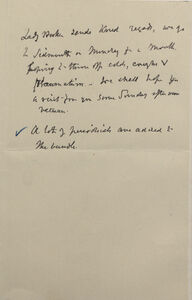 Lady Hooker sends kind regards, we go
to Sidmouth on Monday for a month
hoping to throw off colds, coughs &
rheumatism. We shall hope for
a visit from you some Sunday after our
return.
✓ A lot of periodicals are added to
the bundle.